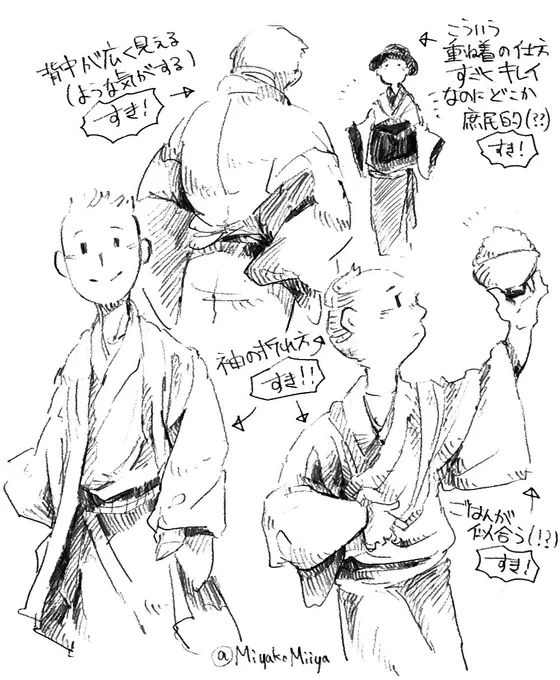 背中が広く見える
(ような気がする)
すき!
こういう
重ね着の仕方
すごくキレイ
なのにどこか
庶民的(??)
すき!
袖の折れ方
すき!!
ごはんが
似合う(!?)
すき!
@MiyakoMiiya